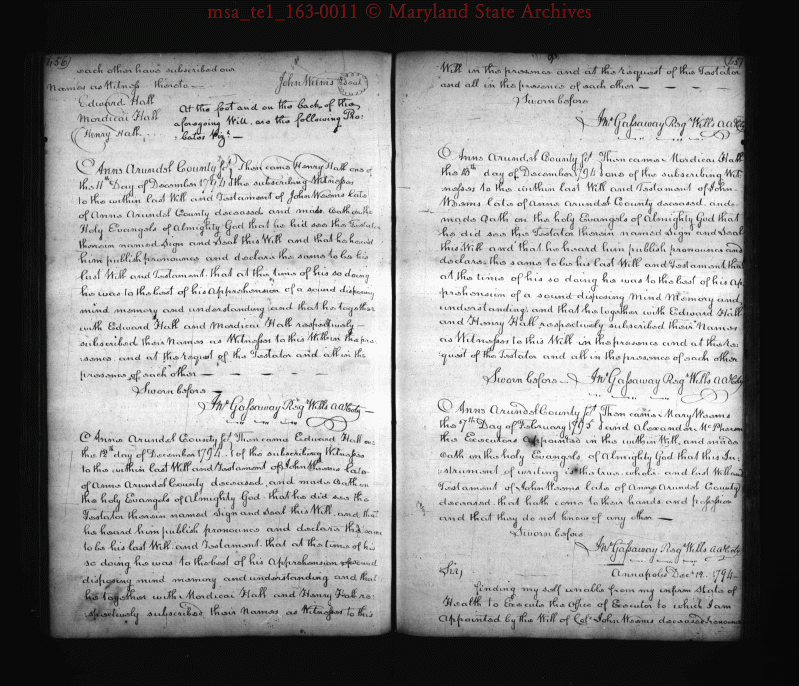 msa_te1_163-0011 © Maryland State Archives
656
each other have subscribed our
Names as Witness thereto —
John Weems Seal
Edward Hall
Mordicai Hall
Henry Hall
At the foot and on the back of the
aforegoing Will, are the following Pro:
bates Viz.t —
Anne Arundel County Sct Then came Henry Hall one of
the 11th Day of December 1794 the subscribing Witnesses
to the within last Will and Testament of John Weems late
of Anne Arundel County deceased and made Oath on the
Holy Evangels of Almighty God that he did see the Testator
therein named Sign and Seal this Will and that he heard
him publish pronounce and declare the same to be his
last Will and Testament, that at the time of his so doing
he was to the best of his Apprehension of a sound disposing
mind memory and understanding and that he together
with Edward Hall and Mordicai Hall respectively —
subscribed their Names as Witness to this Will in the pre:
sence and at the request of the Testator and all in the
presence of each other —
Sworn before —
Jno Gassaway Reg.r Wills AA County —
Anne Arundel County Sct Then came Edward Hall one
the 12th day of December 1794 of the subscribing Witnesses
to the within last Will and Testament of John Weems late
of Anne Arundel County deceased, and made Oath on
the holy Evangels of Almighty God that he did see the
Testator therein named Sign and Seal this Will, and that
he heard him publish pronounce and declare the same
to be his last Will and Testament, that at the time of his
so doing he was to the best of his Apprehension of sound
disposing mind memory and understanding and that
he together with Mordicai Hall and Henry Hall re:
spectively subscribed their Names as Witnesses to this
657
Will in the presence and at the request of the Testator
and all in the presence of each other —
Sworn before
Jno Gassaway Reg.r Wills AA Coty
Anne Arundel County Sct Then came Mordicai Hall
the 18th day of December 1794 one of the subscribing Wit
nesses to the within last Will and Testament of John
Weems late of Anne Arundel County deceased, and
made Oath on the holy Evangels of Almighty God that
he did see the Testator therein named Sign and Seal
this Will and that he heard him publish pronounce and
declare the same to be his last Will and Testament that
at the time of his so doing he was to the best of his Ap
prehension of a sound disposing Mind Memory and
understanding, and that he together with Edward Hall
and Henry Hall respectively subscribed their Names
as Witnesses to this Will in the presence and at the re:
quest of the Testator and all in the presence of each other
Sworn before — Jno Gassaway Reg.r Wills AA Coty
Anne Arundel County Sct Then came Mary Weems
the 7th Day of February 1795 and Alexander Mc Pherson
the Executors appointed in the within Will and made
oath on the holy Evangels of Almighty God that this In:
strument of writing is the true whole and last Will and
Testament of John Weems late of Anne Arundel County
deceased that hath come to their hands and possession
and that they do not know of any other —
Sworn before
Jno Gassaway Reg.r Wills AA Coty
Sir,
Annapolis Decr 19. 1794 —
finding my self unable from my infirm State of
Health to Execute the Office of Executor to which I am
Appointed by the Will of Col.o John Weems deceased